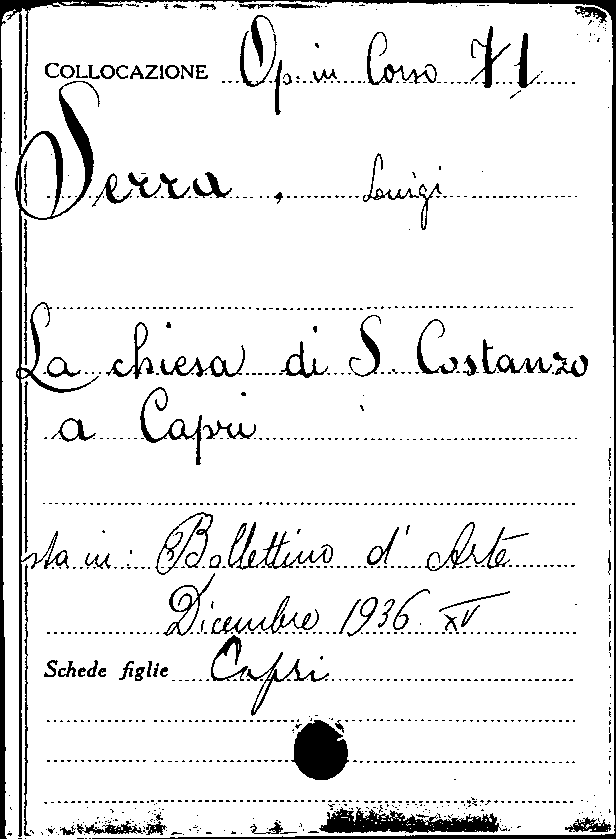 COLLOCAZIONE Op. in Corso 71
Serra, Luigi
La chiesa di S. Costanzo
a Capri
sta in: Bollettino d'Arte
Dicembre 1936. XV
Schede figlie Capri